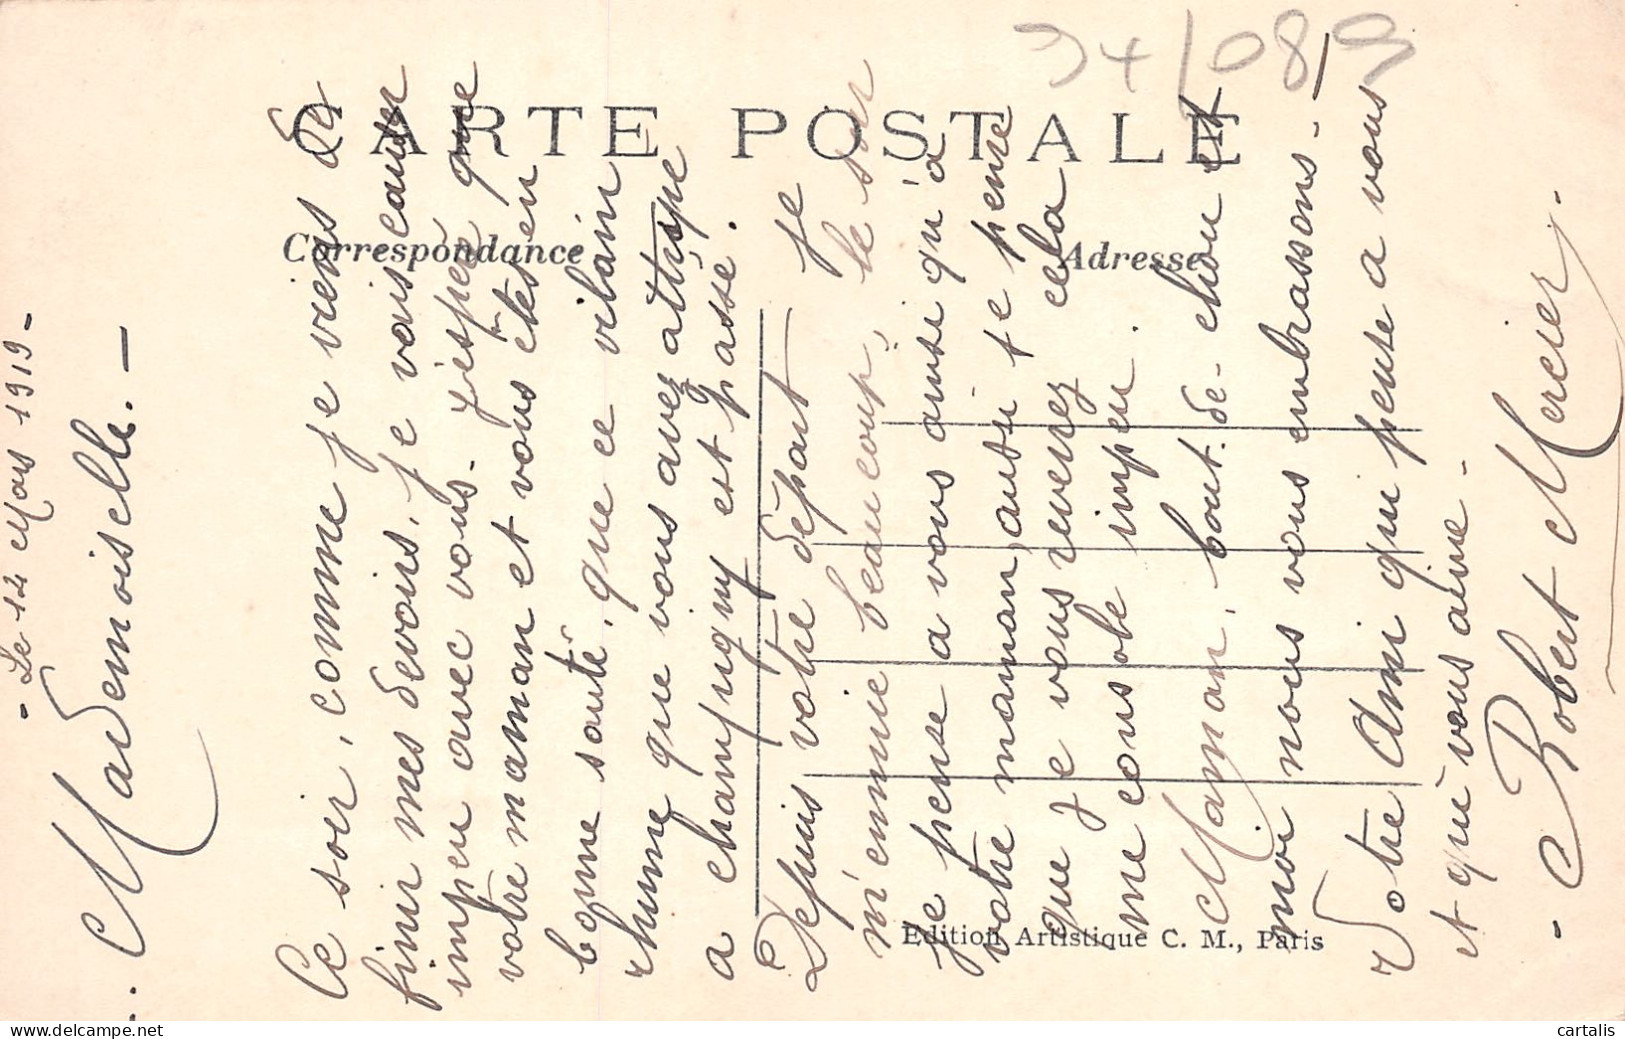 CARTE POSTALE
Correspondance
Adresse
- Le 12 Mars 1919 -
Mademoiselle. -
Ce soir, comme je viens de
finir mes devoirs, je vais causer
impeu avec vous. j'espère que
votre maman et vous êtes en
bonne santé, que ce vilain
rhume que vous avez attrape
a champigny est passé.
Depuis votre départ je
m'ennuie beaucoup, le soir
je pense a vous ainsi qu'à
votre maman, aussi je pense
que je vous reverrez cela
me console impeu.
Maman, bout-de-chou et
moi nous vous embrassons -
Votre Ami qui pense a vous
et qui vous aime -
- Robert Mercier.
Edition Artistique C. M., Paris
cartalis